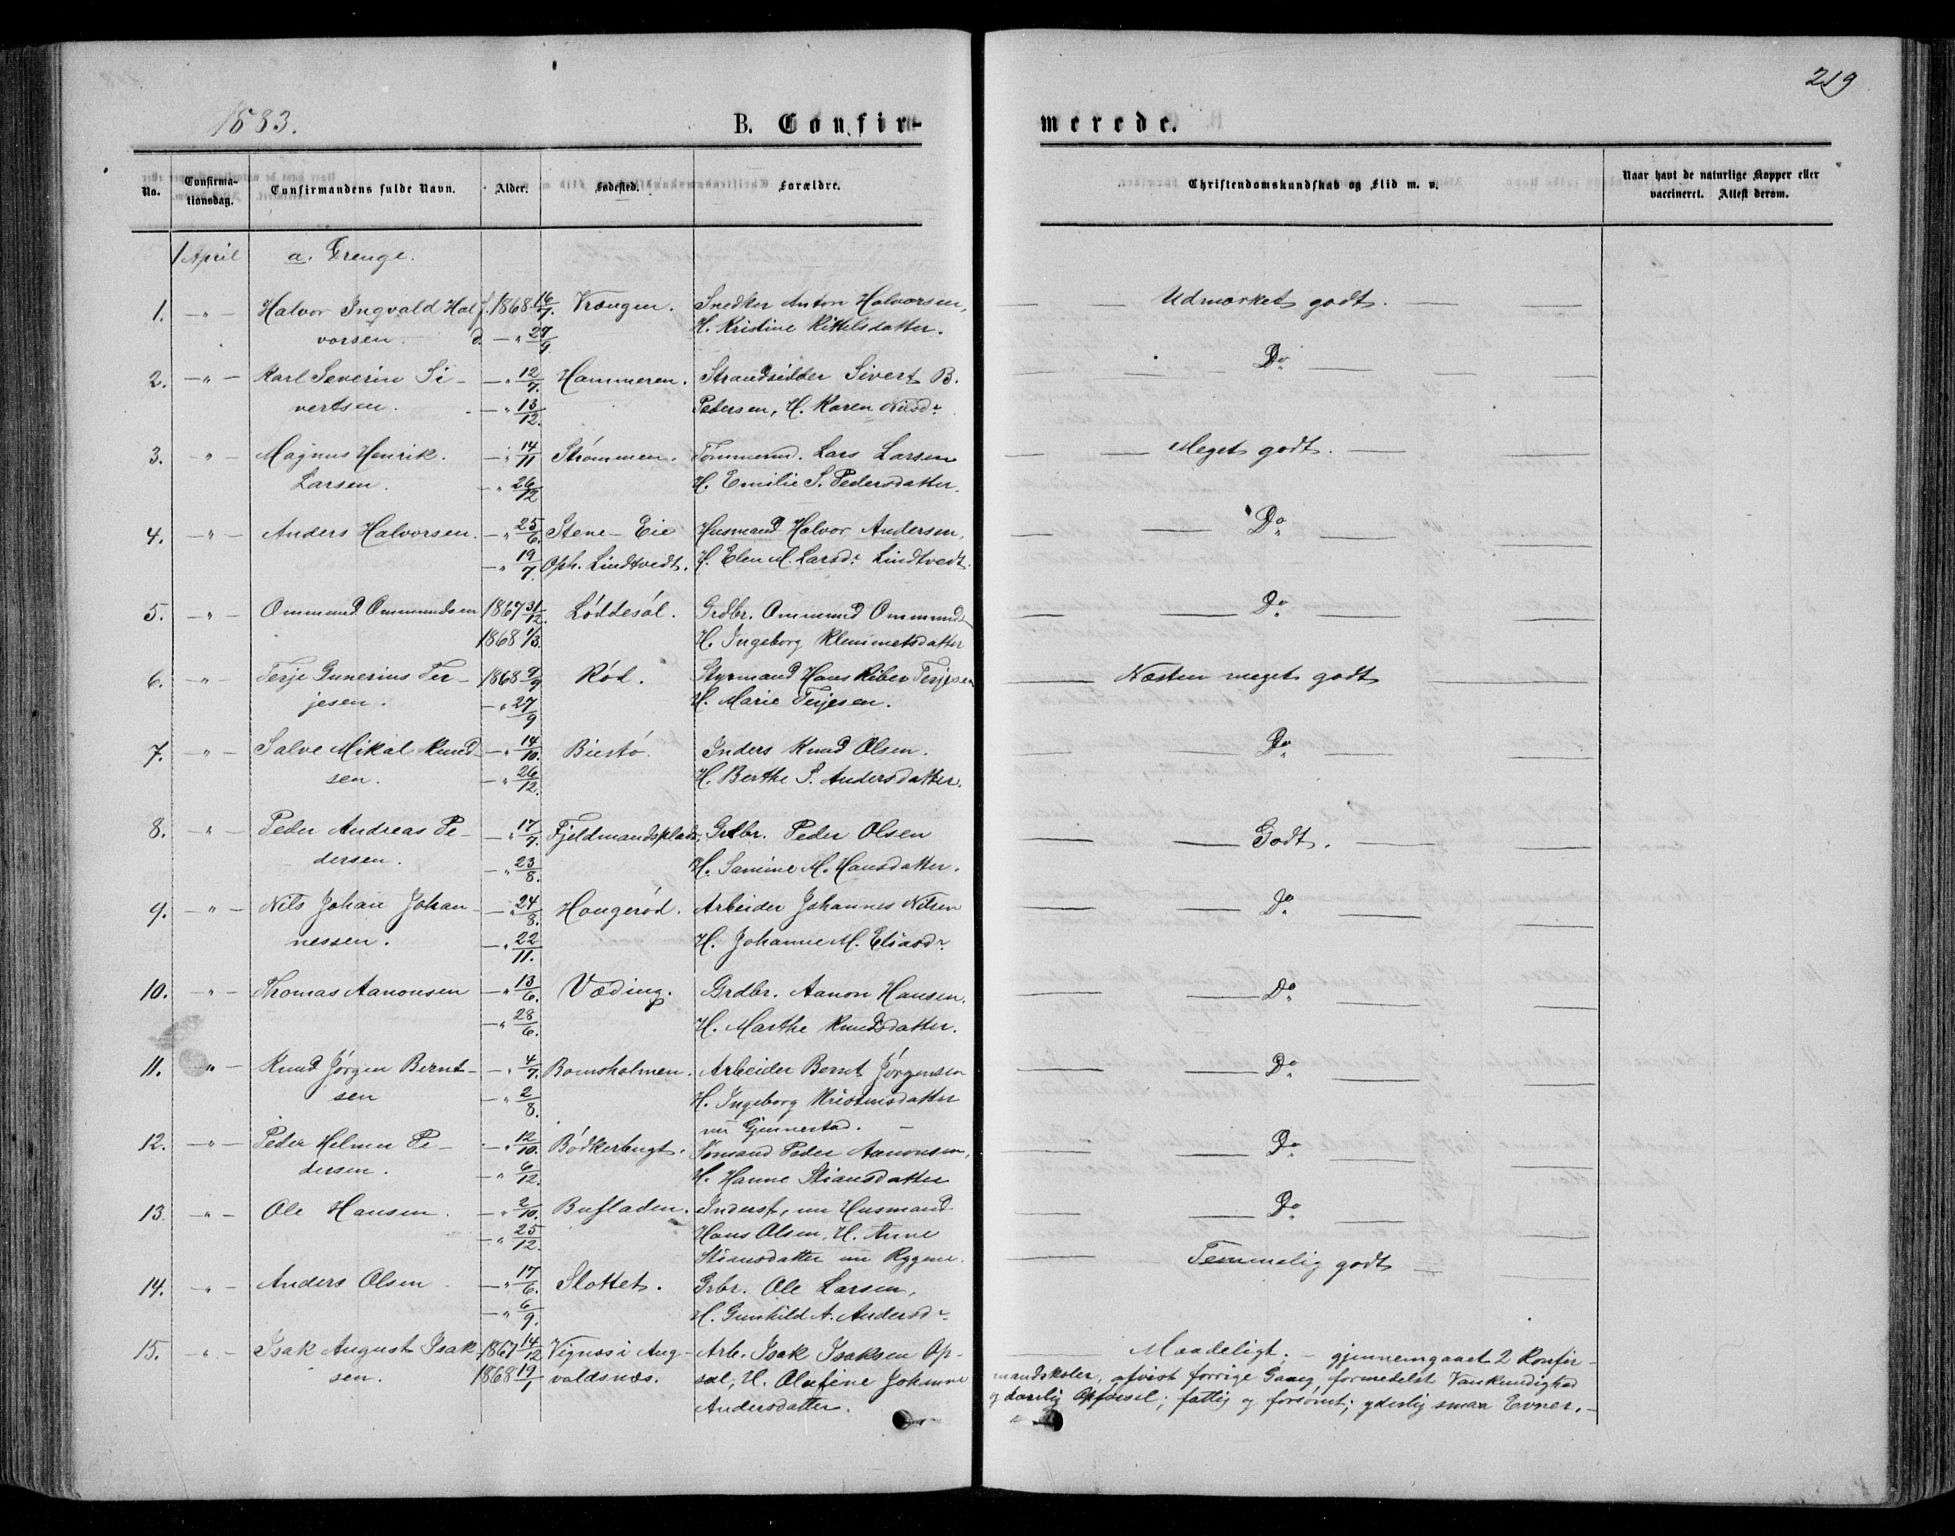 219
1883.
B. Confir-
merede.
No.
Confirma-
tionsdag.
Confirmandens fulde Navn.
Alder.
Fødested.
Forældre.
Christendomskundskab og Flid m. v.
Naar havt de naturlige Kopper eller
vaccineret. Attest derom.
1 April a. Drenge.
1. — " — Halvor Ingvald Hal- f. 1868 16/7. Vrængen. Snedker Anton Halvorsen, — — Udmærket godt. — —
vorsen. d. — " 27/9 H. Kristine Kittelsdatter.
2. — " — Karl Severin Si- — " 12/7. Hammeren. Strandsidder Sivert B. — — Do — —
vertsen. — " 13/12. Pedersen, H. Karen Nilsdr
3. " — Magnus Henrik — " 14/11 Strømmen. Tømmermd. Lars Larsen — — Meget godt. — —
Larsen. — " 26/12 H. Emilie S. Pedersdatter.
4. — " — Anders Halvorsen. — " 25/6. Stene-Eie Husmand Halvor Andersen, — — Do — —
— " 19/7. Oph. Lindtvedt. H. Elen M. Larsdr Lindtvedt.
5. — " — Ommund Ommundsen 1867 31/12. Løddesøl. Grdbr. Ommund Ommunds — — Do — —
1868 1/3. H. Ingeborg Klemmetsdatter
6. — " Terje Gunerius Ter- 1868 9/9 Rød. Styrmand Hans Riber Terjesen — Næsten meget godt — —
jesen. — " 27/9 H. Marie Terjesen.
7. " — Salve Mikal Knud- — " 14/10. Biestø. Inders Knud Olsen. — — Do — —
sen. — " 26/12. H. Berthe S. Andersdatter.
8. " — Peder Andreas Pe- — " 17/7. Fjeldmandsplads. Grdbr. Peder Olsen — — Godt. — —
dersen. — " 23/8. H. Samine M. Hansdatter.
9. — " — Nils Johan Johan- — " 24/8. Haugerød. Arbeider Johannes Nilsen — — Do — —
nessen. — " 22/11. H. Johanne M. Eliasdr
10. " — Thomas Aanonsen — " 13/6. Væding. Grdbr. Aanon Hansen. — — Do — —
— " 28/6. H. Marthe Knudsdatter.
11. " — Knud Jørgen Bernt- — " 4/7. Bomsholmen. Arbeider Bernt Jørgensen — — Do — —
sen — " 2/8. H. Ingeborg Kristensdatter
nu Gjennestad. —
12. " — Peder Helmer Pe- — " 12/10. Bødkerbugt. Sømand Peder Aanonsen, — — Do — —
dersen. — " 6/12. H. Hanne Stiansdatter
13 — " — Ole Hansen. — " 2/10. Bufladen. Inderst, nu Husmand — — Do — —
— " 25/12. Hans Olsen, H. Anne
Stiansdatter nu Rygene.
14. — " — Anders Olsen — " 17/6. Slottet. Grbr. Ole Larsen, — Temmelig godt — —
— " 6/9. H. Gunhild A. Andersdr
15. — " — Isak August Isak- 1867 14/12 Vignæs i Aug- Arb. Isak Isaksen Op- — Maadeligt. — gjennemgaaet 2 Konfir-
sen. 1868 19/1 valdsnæs. sal, H. Olefine Johanne mandskoler, afvist forrige Gang formedelst Vankundighed
Andersdatter. og daarlig Opførsel; fattig og forsømt; yderlig smaa Evner. —